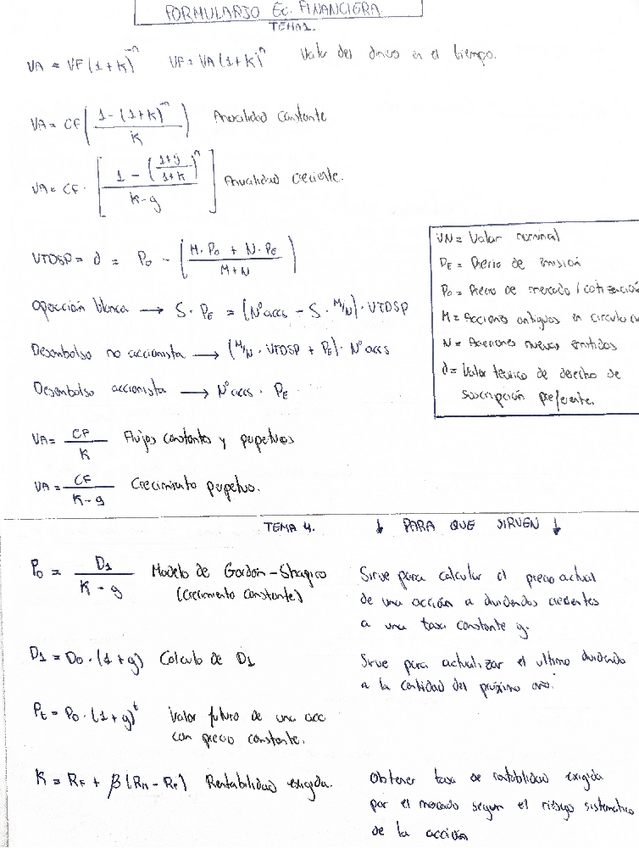 FORMULARIO Ec. FINANCIERA
TEMA 1.
VA = VF (1+K)^-n VF = VA (1+K)^n Valor del dinero en el tiempo.
VA = CF ( (1 - (1+K)^-n) / K ) Anualidad constante
VA = CF · [ (1 - ((1+g)/(1+K))^n) / (K - g) ] Anualidad creciente.
VTDSP = d = P0 - ( (M · P0 + N · PE) / (M+N) )
Operación blanca → S · PE = (Nº accs - S · M/N) · VTDSP
Desembolso no accionista → (M/N · VTDSP + PE) · Nº accs
Desembolso accionista → Nº accs · PE
VA = CF / K Flujos constantes y perpetuos
VA = CF / (K - g) Crecimiento perpetuo.
VN = Valor nominal
PE = Precio de emisión
P0 = Precio de mercado / cotización
M = Acciones antiguas en circula
N = Acciones nuevas emitidas
d = Valor teórico de derecho de
suscripción preferente.
TEMA 4. ↓ PARA QUE SIRVEN ↓
P0 = D1 / (K - g) Modelo de Gordon-Shapiro
(crecimiento constante)
Sirve para calcular el precio actual
de una acción a dividendos crecientes
a una tasa constante g.
D1 = D0 · (1 + g) Calculo de D1
Sirve para actualizar el ultimo dividendo
a la cantidad del próximo año.
Pt = P0 · (1 + g)^t Valor futuro de una acc
con precio constante.
K = RF + β (RM - RF) Rentabilidad exigida.
Obtener tasa de rentabilidad exigida
por el mercado segun el riesgo sistemático
de la acción